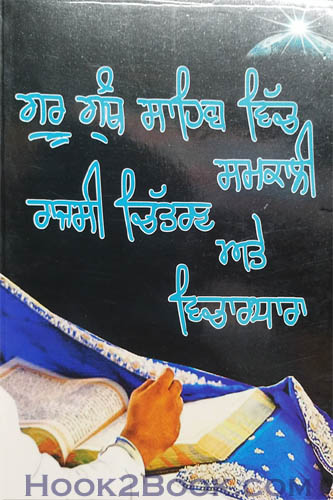 ਗੁਰੂ ਗ੍ਰੰਥ ਸਾਹਿਬ ਵਿੱਚ
ਸਮਕਾਲੀ
ਰਾਜਸੀ ਚਿੱਤਰਣ
ਅਤੇ
ਵਿਚਾਰਧਾਰਾ
Hook2Book.com